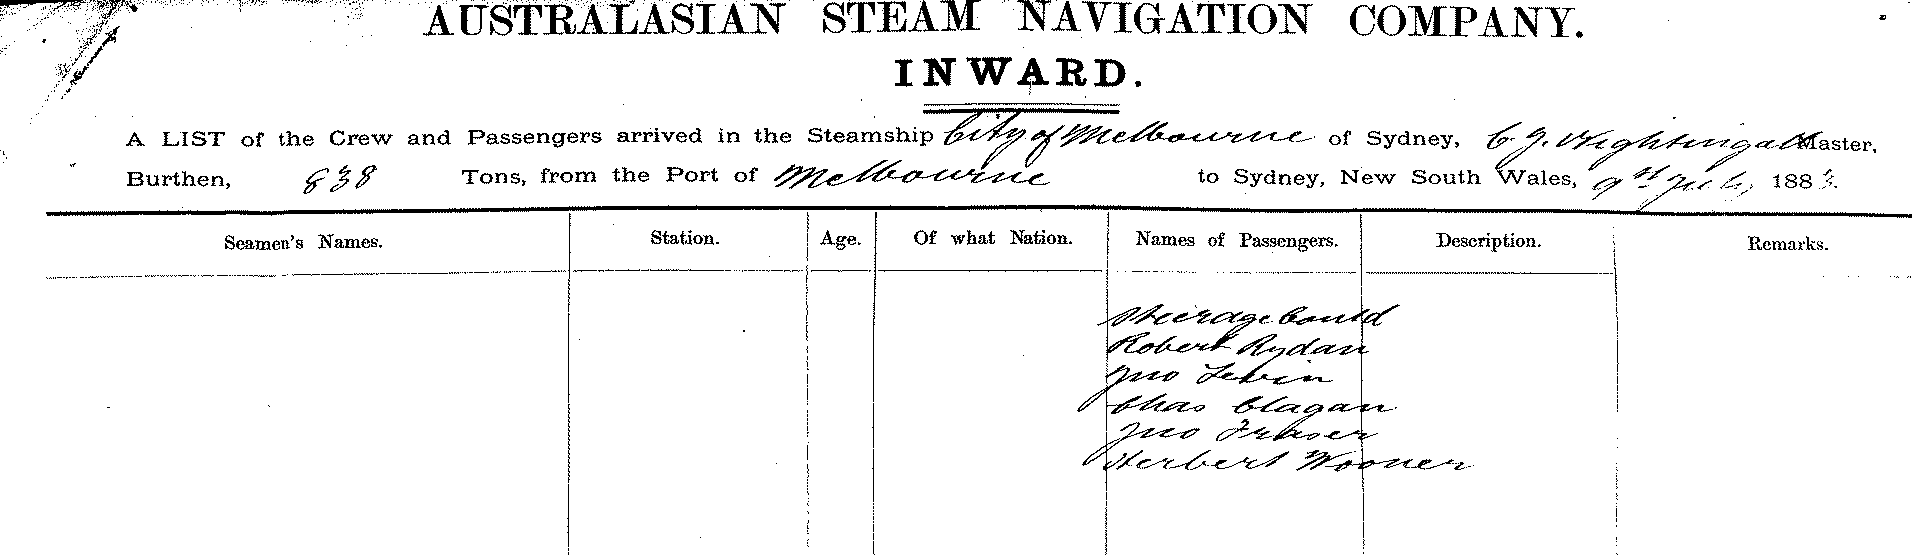 AUSTRALASIAN STEAM NAVIGATION COMPANY.
INWARD.
A LIST of the Crew and Passengers arrived in the Steamship City of Melbourne of Sydney, C J. Nightingale Master,
Burthen, 838 Tons, from the Port of Melbourne to Sydney, New South Wales, 9 July 1883.
Seamen's Names. Station. Age. Of what Nation. Names of Passengers. Description. Remarks.
Steerage Contd
Robert Rydan
Jno Levin
Chas Clagan
Jno Fraser
Herbert Wooner